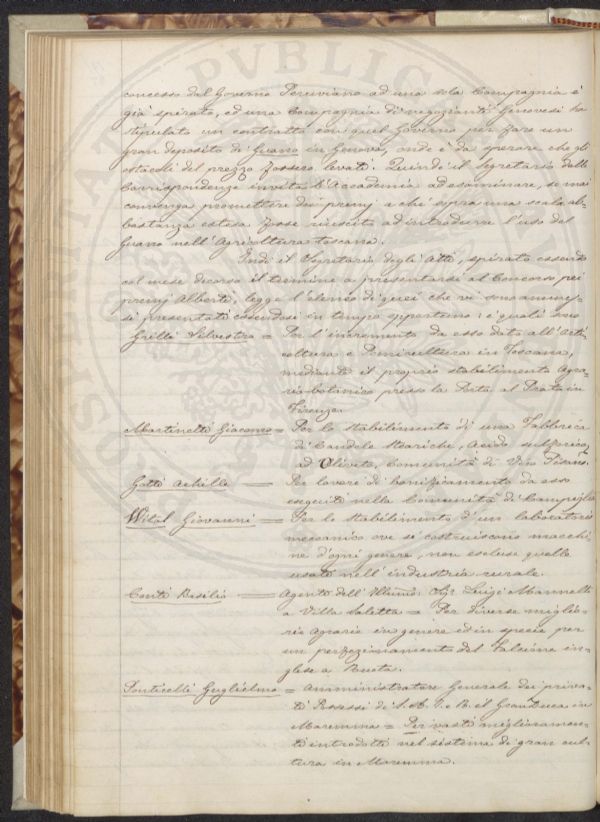 concesso dal Governo Peruviano ad una sola Compagnia è
già spirato, ed una Compagnia di negozianti Genovesi ha
stipulato un contratto con quel Governo per fare un
gran deposito di Guano in Genova, onde è da sperare che gli
ostacoli del prezzo fossero levati. Quindi il Segretario delle
Corrispondenze invita l'Accademia ad esaminare, se mai
convenga promettere dei premj a chi sopra una scala ab-
bastanza estesa fosse riuscito ad introdurre l'uso del
Guano nell'Agricoltura toscana.
Indi il Segretario degli Atti, spirato essendo
col mese decorso il termine a presentarsi al Concorso pei
premj Alberti, legge l'elenco di quei che vi sono ammes-
si presentati essendosi in tempo opportuno: i quali sono
Grilli Silvestro = Per l'incremento da esso dato all'Orti
coltura e Pomicultura in Toscana,
mediante il proprio stabilimento Agra-
rio-botanico presso la Porta al Prato in
Firenze.
Martinetti Giacomo = Per lo stabilimento di una Fabbrica
di Candele steariche, Acido sulforico,
ad Oliveto, Comunità di Vico Pisano.
Gotti Achille = Per lavori di bonificamento da esso
eseguiti nella Comunità di Campiglia
Wital Giovanni = Per lo stabilimento d'un laboratorio
meccanico ove si costruiscono macchi
ne d'ogni genere, non escluse quelle
usate nell'industria rurale.
Conti Basilio = Agente dell'Illmo. Sigr. Luigi Mannelli
a Villa Saletta = Per diverse miglio-
rie agrarie in genere ed in specie per
un perfezionamento del Falcione in-
glese a Ruota.
Ponticelli Guglielmo = Amministratore Generale dei priva-
ti Possessi di S. A. I. e R. il Granduca in
Maremma = Per vasti miglioramen-
ti introdotti nel sistema di gran cul-
tura in Maremma.